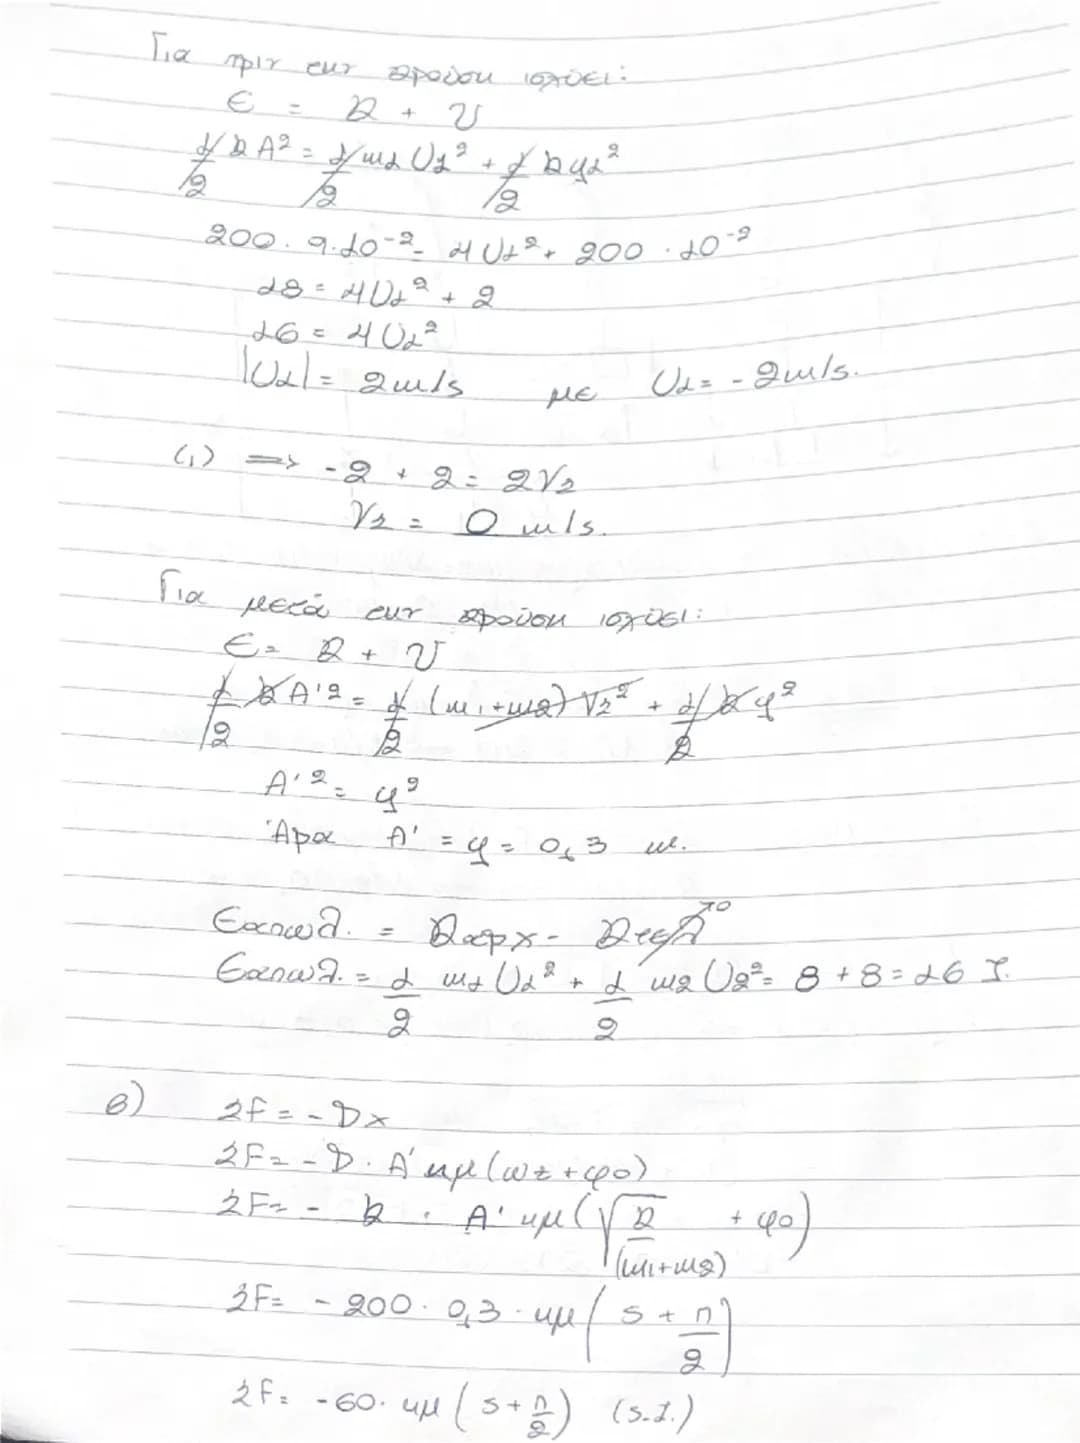 Για πριν την κρούση ισχύει:
Ε = Κ + U
1/2 k A² = 1/2 m₁ υ₁² + 1/2 k y₁²
200 · 9·10⁻² = 4υ₁² + 200 · 10⁻²
18 = 4υ₁² + 2
16 = 4υ₁²
|υ₁| = 2m/s με υ₁ = -2m/s.
(1) => -2 + 2 = 2V₂
V₂ = 0 m/s.
Για μετά την κρούση ισχύει:
Ε = Κ + U
1/2 k A'² = 1/2 (m₁+m₂) V₂² + 1/2 k y²
A'² = y²
Άρα A' = y = 0,3 m.
Εαπωλ. = Καρχ - Κτελ →0
Εαπωλ. = 1/2 m₁ υ₁² + 1/2 m₂ υ₂² = 8 + 8 = 16 J.
β) ΣF = -Dx
ΣF = -D · A' ημ(ωt + φο)
ΣF = - k · A' ημ(√k/(m₁+m₂) + φο)
ΣF = -200 · 0,3 · ημ(5 + π/2)
ΣF = -60 · ημ(5 + π/2) (S.I.)